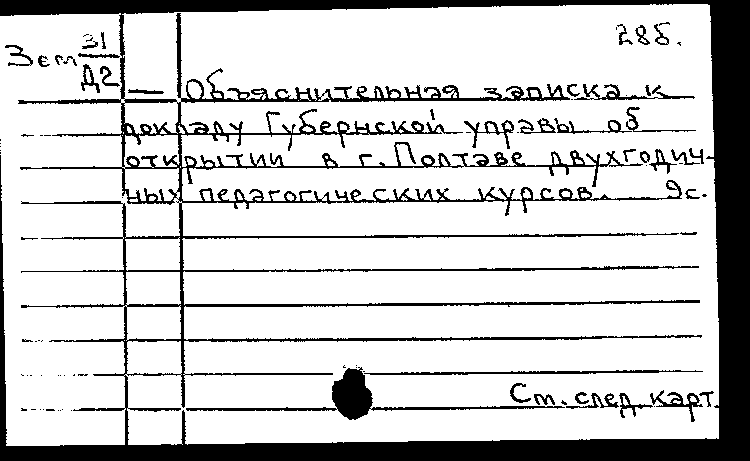 28б.
Зем 31/Д2
— Объяснительная записка к
докладу Губернской управы об
открытии в г. Полтаве двухгодич-
ных педагогических курсов. 9с.
Ст. след. карт.